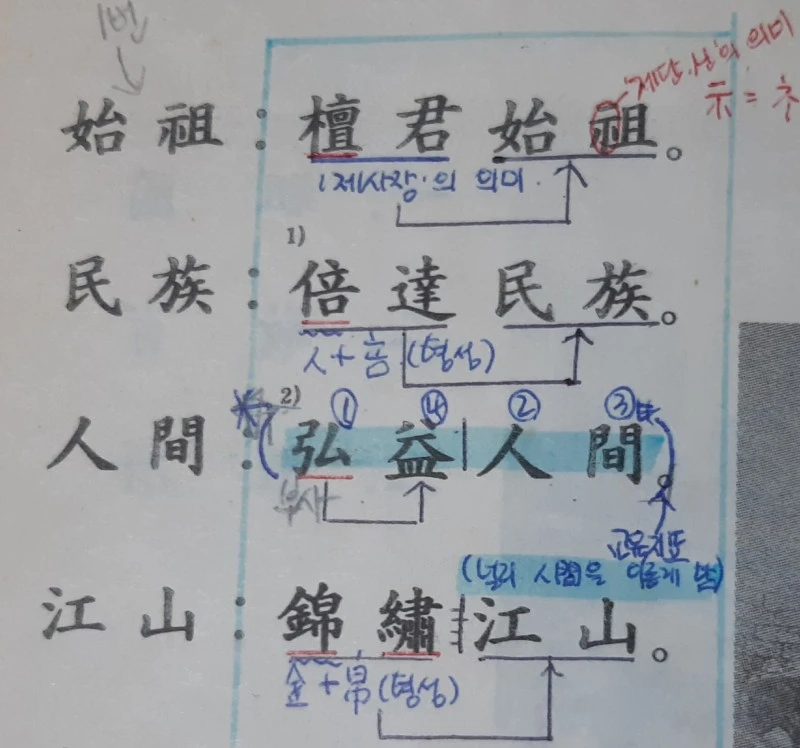 1번
'제단, 상'의 의미
示 = 礻
始 祖 : 檀 君 始 祖。
'제사장'의 의미
1)
民 族 : 倍 達 民 族。
人 + 咅 (형성)
2) ① ④ ② ③
人 間 : 弘 益 人 間。
부사
(널리 人間을 이롭게 함)
江 山 : 錦 繡 江 山。
金 + 帛 (형성)